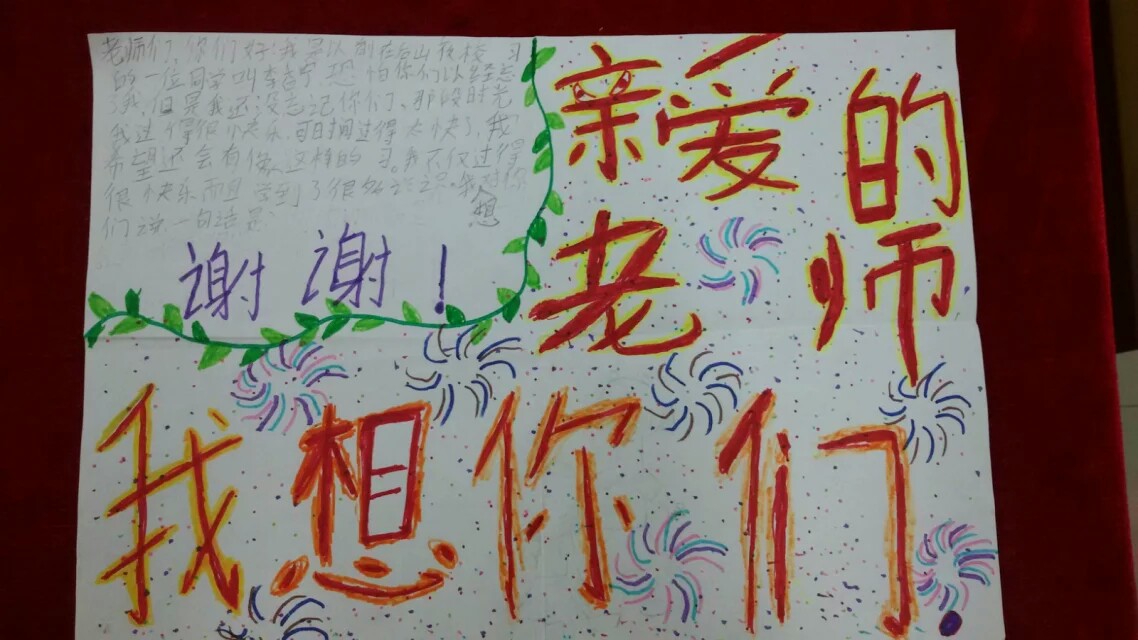 老师们，你们好：我是以前在台山夜校 习
的一位同学叫李 恐怕你们以经忘
了我，但是我还没忘记你们、那段时光
我过得很快乐， 过得太快了，我
希望还会有像这样的 习。我不仅过得
很快乐而且学到了很多 识，我想对你
们说一句话是：
谢谢！
亲爱的
老师
我想你们